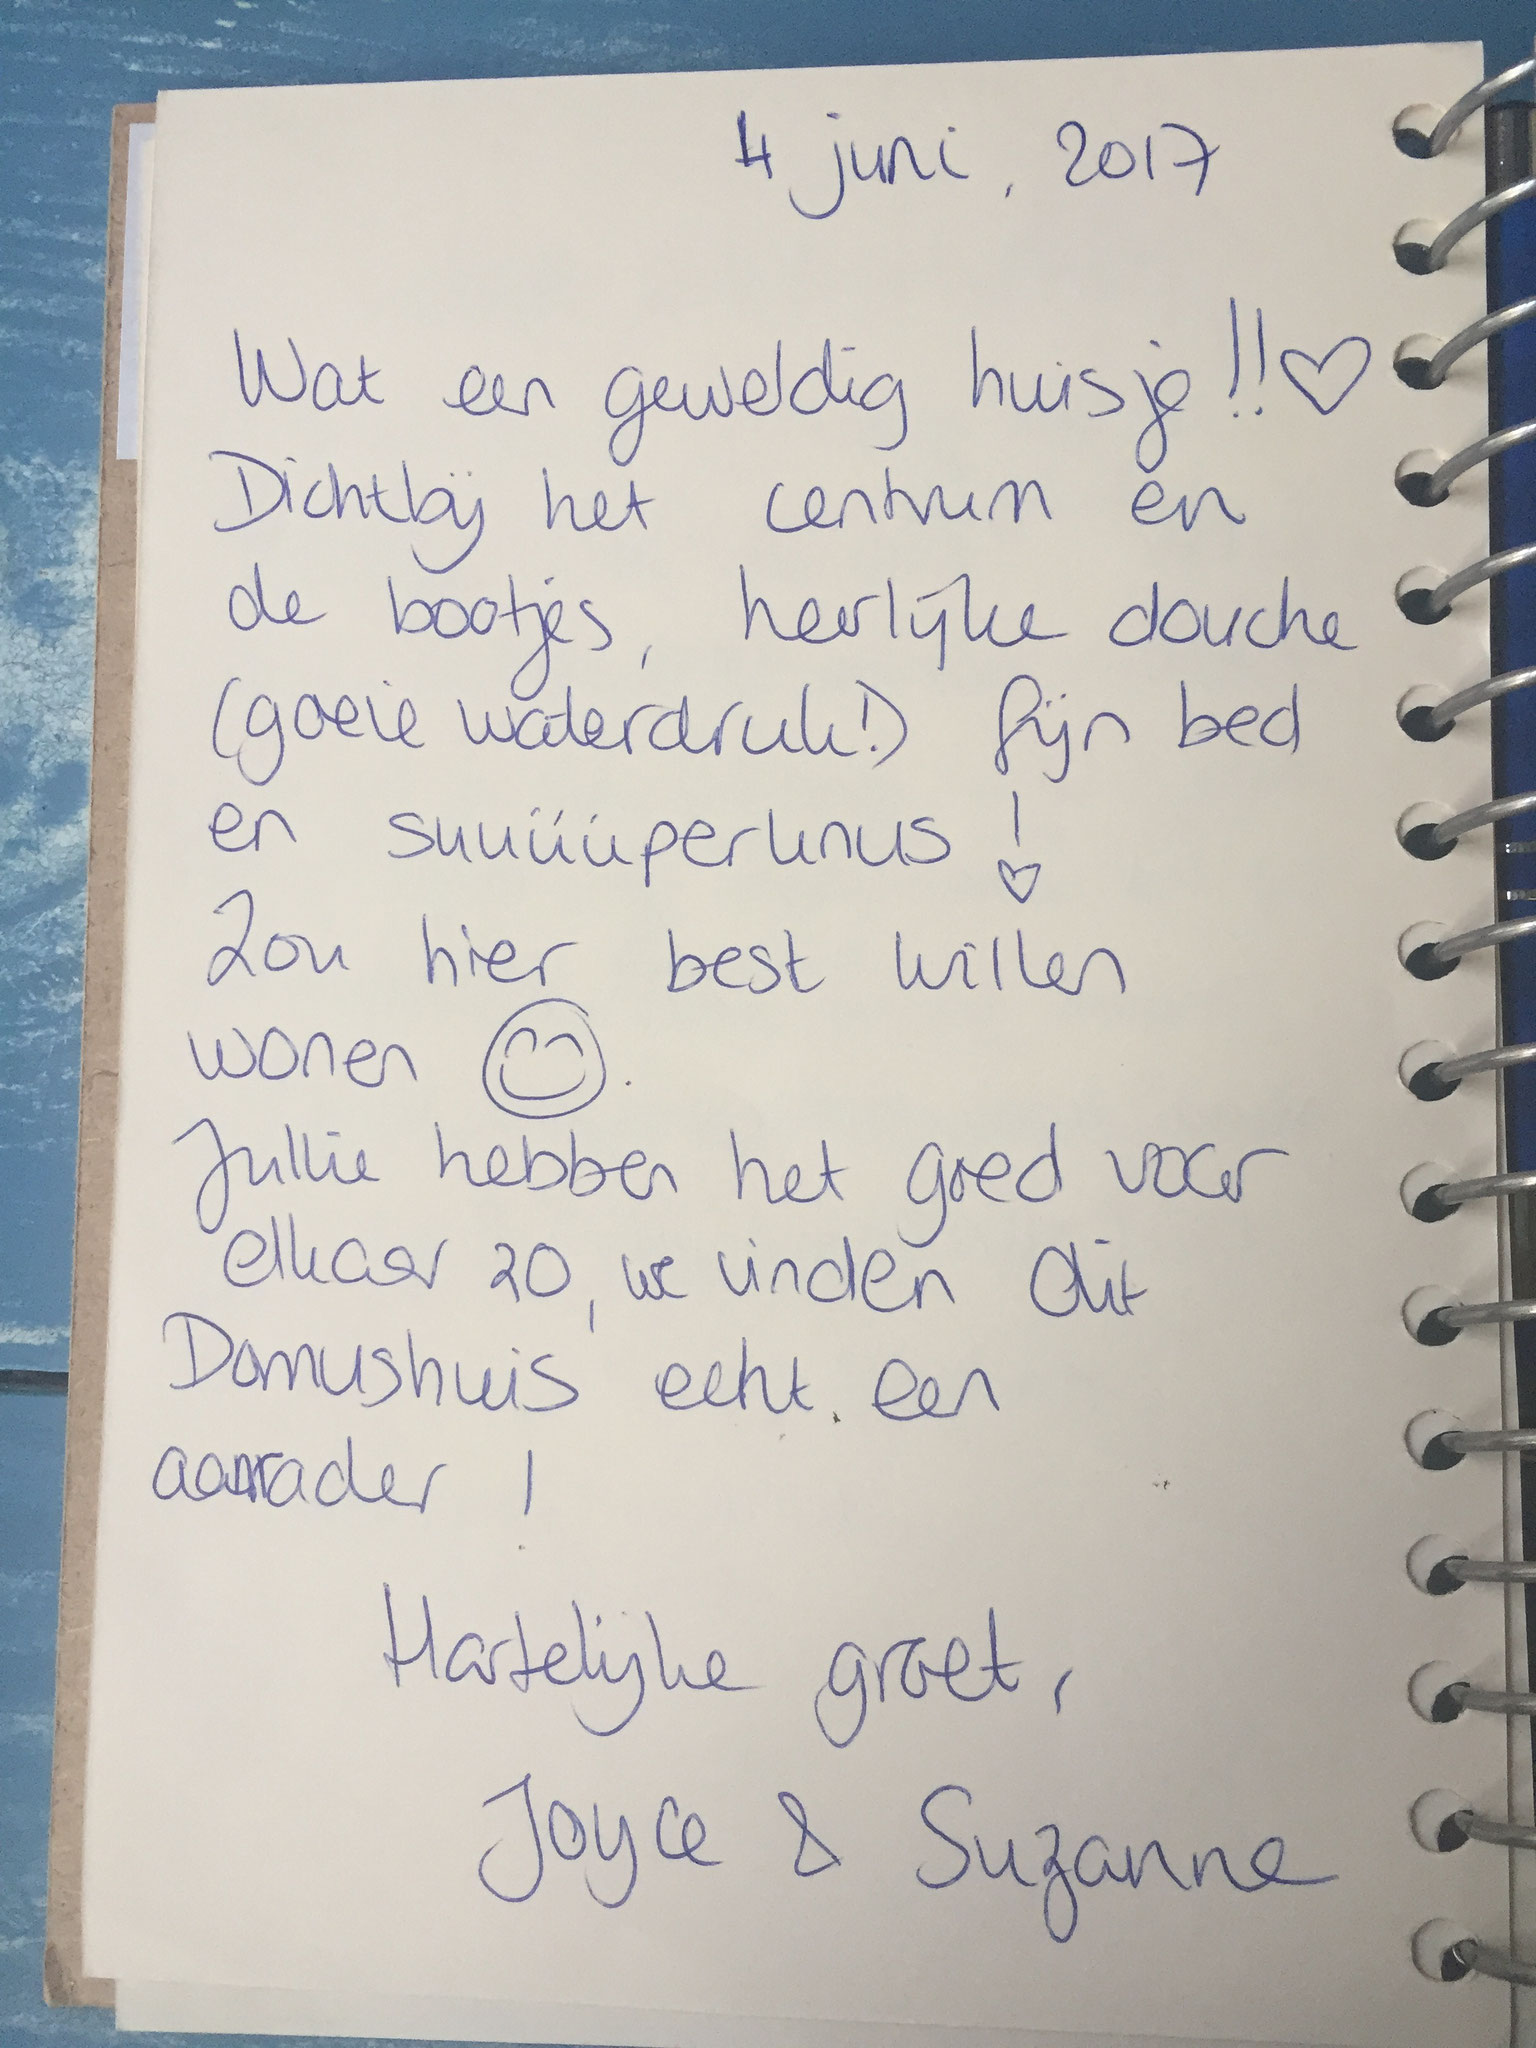 4 juni, 2017
Wat een geweldig huisje!!♡
Dichtbij het centrum en
de bootjes, heerlijke douche
(goeie waterdruk!) fijn bed
en suuüüüperknus!
Zou hier best willen
wonen ☺.
Jullie hebben het goed voor
elkaar zo, we vinden dit
Domushuis echt een
aanrader!
Hartelijke groet,
Joyce & Suzanne